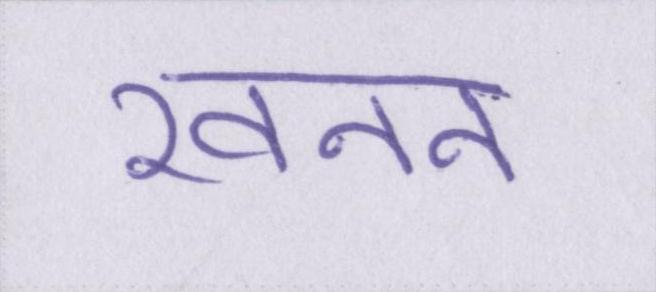 खनन